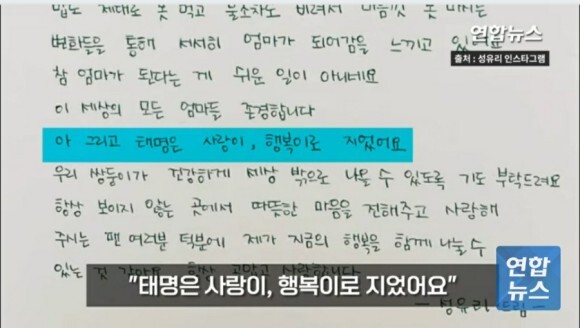 제대로 못 먹고
변화들을 통해 서서히 엄마가 되어감을 느끼고
연합뉴스
출처 : 성유리 인스타그램
참 엄마가 된다는 게 쉬운 일이 아니네요
이 세상의 모든 엄마들 존경합니다
아 그리고 태명은 사랑이, 행복이로 지었어요
우리 쌍둥이가 건강하게 세상 밖으로 나올 수 있도록 기도 부탁드려요
항상 보이지 않는 곳에서 따뜻한 마음을 전해주고 사랑해
주시는 팬 여러분 덕분에 제가 지금의 행복을 함께 나눌 수
있는 것 같아요
"태명은 사랑이, 행복이로 지었어요"
연합
뉴스
- 성유리 드림 -